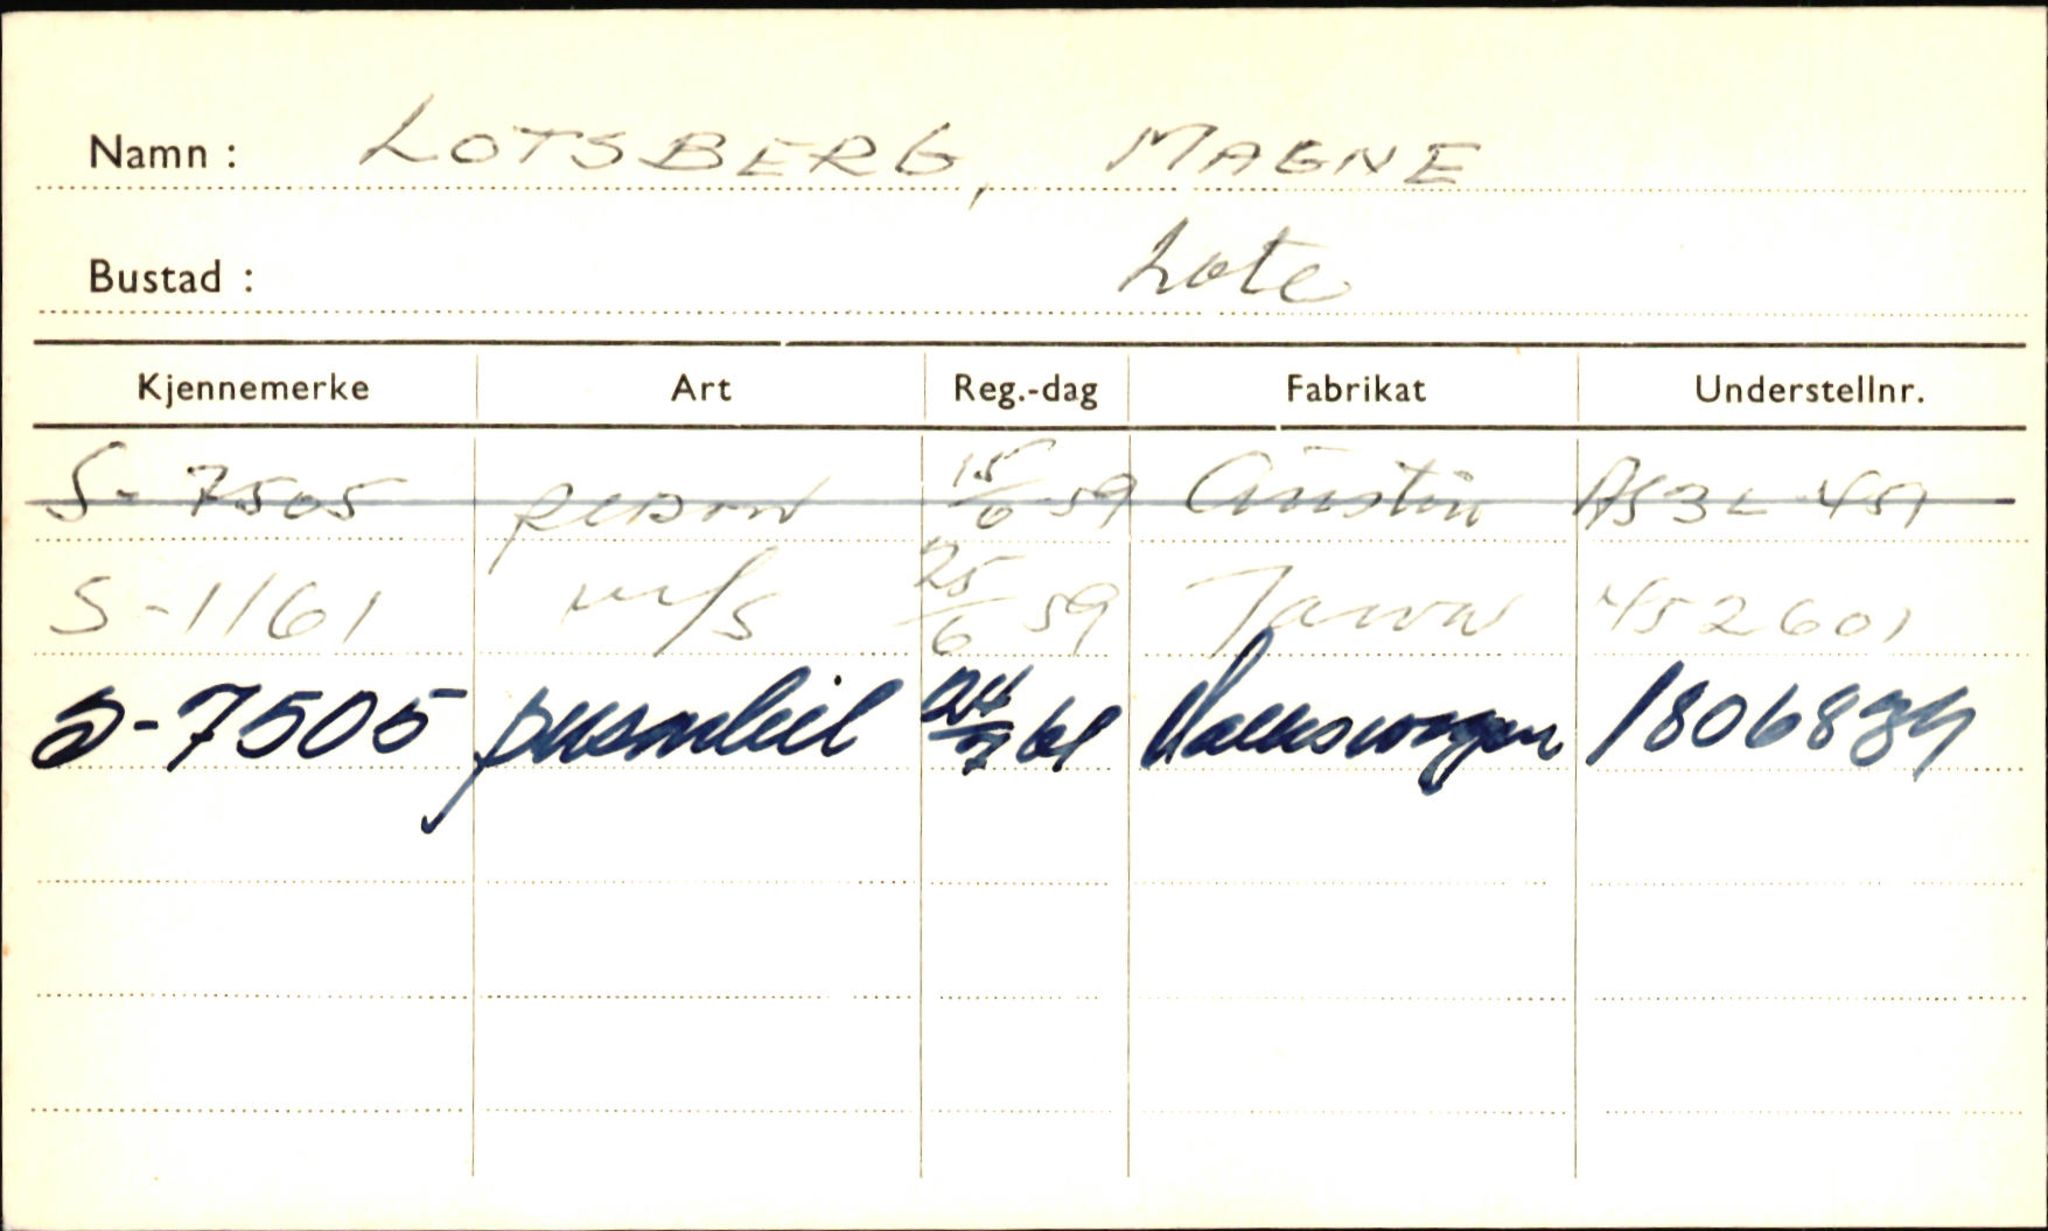 Namn : LOTSBERG, MAGNE
Bustad : Lote
Kjennemerke Art Reg.-dag Fabrikat Understellnr.
S-7505 person 15/6 59 Austin AS3L 451
S-1161 m/s 25/6 59 Jawa 452601
S-7505 personbil 24/7 61 Volkswagen 1806839